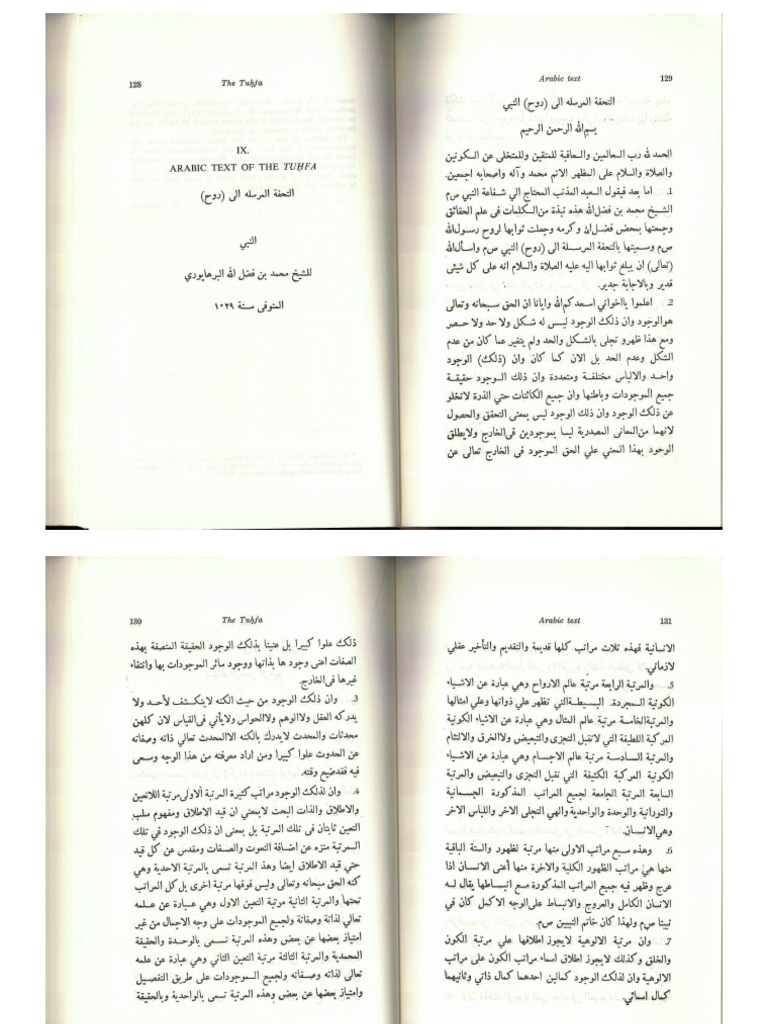 128
The Tuḥfa
IX.
ARABIC TEXT OF THE TUḤFA
التحفة المرسله الى (روح)
النبي
للشيخ محمد بن فضل الله البرهابوري
المتوفى سنة ١٠٢٩
Arabic text
129
التحفة المرسله الى (روح) النبي
بسم الله الرحمن الرحيم
الحمد لله رب العالمين والعاقبة للمتقين وللمتخلى عن الكونين
والصلاة والسلام على المظهر الاتم محمد وآله واصحابه اجمعين.
1. اما بعد فيقول العبد المذنب المحتاج الي شفاعة النبي ص م
الشيخ محمد بن فضل الله هذه نبذة من الكلمات فى علم الحقائق
وجمعتها بمحض فضل الله وكرمه وجعلت ثوابها لروح رسول الله
ص م وسميتها بالتحفة المرسلة الى (روح) النبي ص م واسأل الله
(تعالى) ان يبلغ ثوابها اليه عليه الصلاة والسلام انه على كل شيئى
قدير وبالاجابة جدير.
2. اعلموا يااخواني اسعدكم الله وايانا ان الحق سبحانه وتعالى
هو الوجود وان ذلك الوجود ليس له شكل ولا حد ولا حصر
ومع هذا ظهر وتجلى بالشكل والحد ولم يتغير عما كان من عدم
الشكل وعدم الحد بل الان كما كان وان (ذلك) الوجود
واحد والالباس مختلفة ومتعددة وان ذلك الوجود حقيقة
جميع الموجودات وباطنها وان جميع الكائنات حتي الذرة لاتخلو
عن ذلك الوجود وان ذلك الوجود ليس بمعنى التحقق والحصول
لانهما من المعانى المصدرية ليسا بموجودين فى الخارج ولا يطلق
الوجود بهذا المعني علي الحق الموجود فى الخارج تعالى عن
130
The Tuḥfa
ذلك علوا كبيرا بل عنينا بذلك الوجود الحقيقة المتصفة بهذه
الصفات اعنى وجود ها بذاتها ووجود سائر الموجودات بها وانتفاء
غيرها فى الخارج.
3. وان ذلك الوجود من حيث الكنه لا ينكشف لأحد ولا
يدركه العقل ولا الوهم ولا الحواس ولا يأتي فى القياس لان كلهن
محدثات والمحدث لايدرك بالكنه الا المحدث تعالي ذاته وصفاته
عن الحدوث علوا كبيرا ومن اراد معرفته من هذا الوجه وسعى
فيه فقد ضيع وقته.
4. وان لذلك الوجود مراتب كثيرة المرتبة الأولى مرتبة اللاتعين
والاطلاق والذات البحت لا بمعني ان قيد الاطلاق ومفهوم سلب
التعين ثابتان فى تلك المرتبة بل بمعنى ان ذلك الوجود في تلك
المرتبة منزه عن اضافة النعوت والصفات ومقدس عن كل قيد
حتي قيد الاطلاق ايضا وهذ المرتبة تسمى بالمرتبة الاحدية وهي
كنه الحق سبحانه وتعالى وليس فوقها مرتبة اخرى بل كل المراتب
تحتها والمرتبة الثانية مرتبة التعين الاول وهي عبارة عن علمه
تعالي لذاته وصفاته ولجميع الموجودات على وجه الاجمال من غير
امتياز بعضها عن بعض وهذه المرتبة تسمى بالوحدة والحقيقة
المحمدية والمرتبة الثالثة مرتبة التعين الثاني وهي عبارة عن علمه
تعالى لذاته وصفاته ولجميع الموجودات على طريق التفصيل
وامتياز بعضها عن بعض وهذه المرتبة تسمى بالواحدية وبالحقيقة
Arabic text
131
الانسانية فهذه ثلاث مراتب كلها قديمة والتقديم والتأخير عقلي
لا زماني.
5. والمرتبة الرابعة مرتبة عالم الارواح وهي عبارة عن الاشياء
الكونية المجردة. البسيطة التي تظهر علي ذواتها وعلي امثالها
والمرتبة الخامسة مرتبة عالم المثال وهي عبارة عن الاشياء الكونية
المركبة اللطيفة التي لاتقبل التجزى والتبعيض ولا الخرق والالتئام
والمرتبة السادسة مرتبة عالم الاجسام وهي عبارة عن الاشياء
الكونية المركبة الكثيفة التي تقبل التجزى والتبعيض والمرتبة
السابعة المرتبة الجامعة لجميع المراتب المذكورة الجسمانية
والنورانية والوحدة والواحدية والهي التجلى الاخر واللباس الاخر
وهي الانسان.
6. وهذه سبع مراتب الاولى منها مرتبة لظهور والستة الباقية
منها هي مراتب الظهور الكلية والاخرة منها أعنى الانسان اذا
عرج وظهر فيه جميع المراتب المذكورة مع انبساطها يقال له
الانسان الكامل والعروج والانبساط على الوجه الاكمل كان في
نبينا ص م ولهذا كان خاتم النبيين ص م.
7. وان مرتبة الالوهية لايجوز اطلاقها علي مرتبة الكون
والخلق وكذلك لايجوز اطلاق اسماء مراتب الكون على مراتب
الالوهية وان لذلك الوجود كمالين احدهما كمال ذاتي وثانيهما
كمال اسمائي.